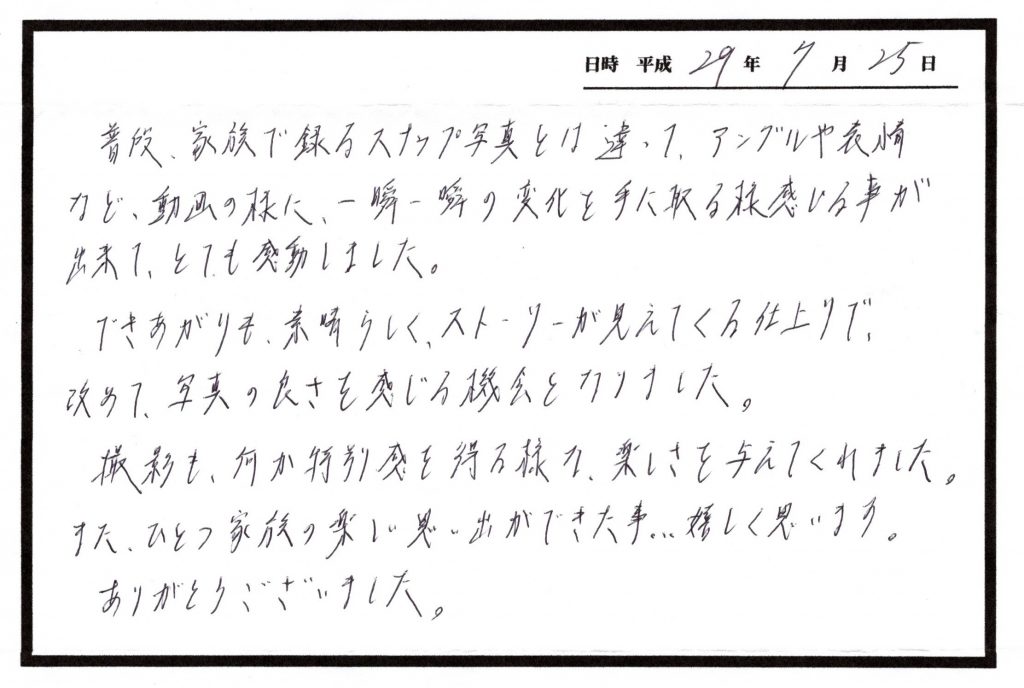 日時 平成 29 年 7 月 25 日
普段、家族で録るスナップ写真とは違って、アングルや表情
など、動画の様に、一瞬一瞬の変化を手に取る様感じる事が
出来て、とても感動しました。
できあがりも、素晴らしく、ストーリーが見えてくる仕上りで、
改めて、写真の良さを感じる機会となりました。
撮影も、何か特別感を得る様な、楽しさを与えてくれました。
また、ひとつ家族の楽しい思い出ができた事…嬉しく思います。
ありがとうございました。